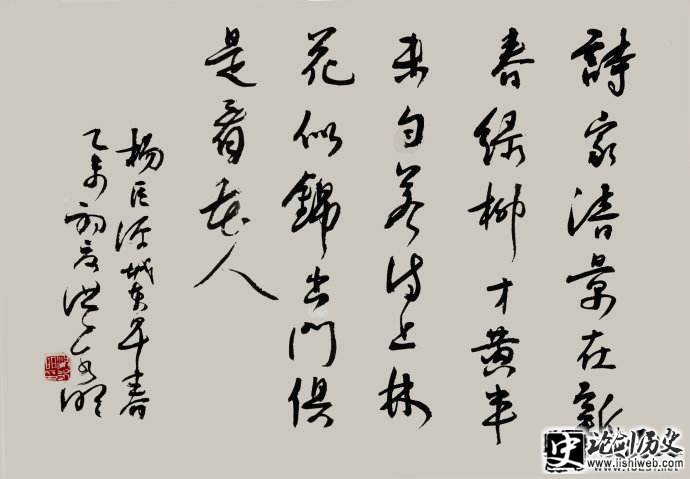 詩家清景在新
春绿柳才黄半
未匀若待上林
花似錦出門俱
是看花人
杨巨源城東早春
乙未初夏洪
史 论剑历史
www.lishiweb.com